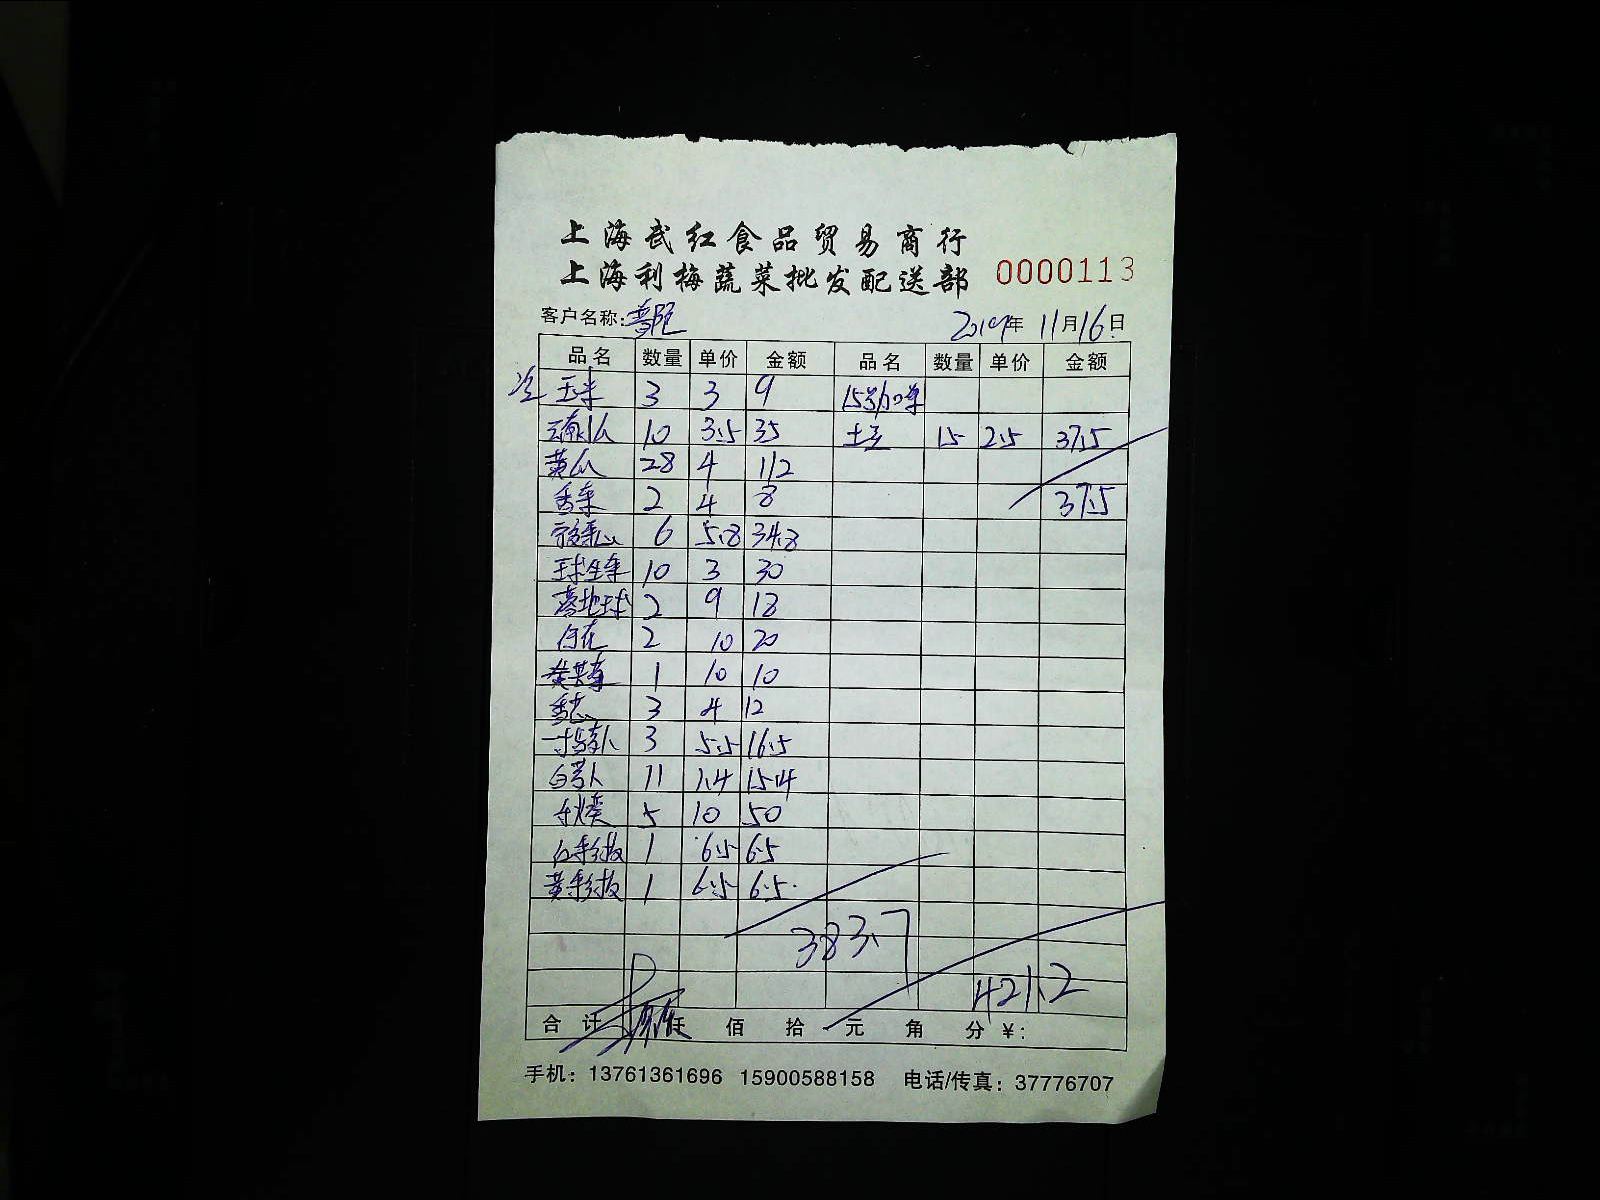 上海武红食品贸易商行
上海利梅蔬菜批发配送部 0000113
客户名称:普陀 2019年 11月16日
品名 数量 单价 金额 品名 数量 单价 金额
玉米 3 3 9 15号加单
10 3.5 35 土豆 15 2.5 37.5
黄瓜 28 4 112
香菜 2 4 8 37.5
6 5.8 34.8
球生菜 10 3 30
落地球 2 9 18
2 10 20
1 10 10
香葱 3 4 12
3 5.5 16.5
白萝卜 11 1.4 15.4
5 10 50
红彩椒 1 6.5 6.5
黄彩椒 1 6.5 6.5
383.7
421.2
合计 仟 佰 拾 元 角 分 ¥:
手机: 13761361696 15900588158 电话/传真: 37776707